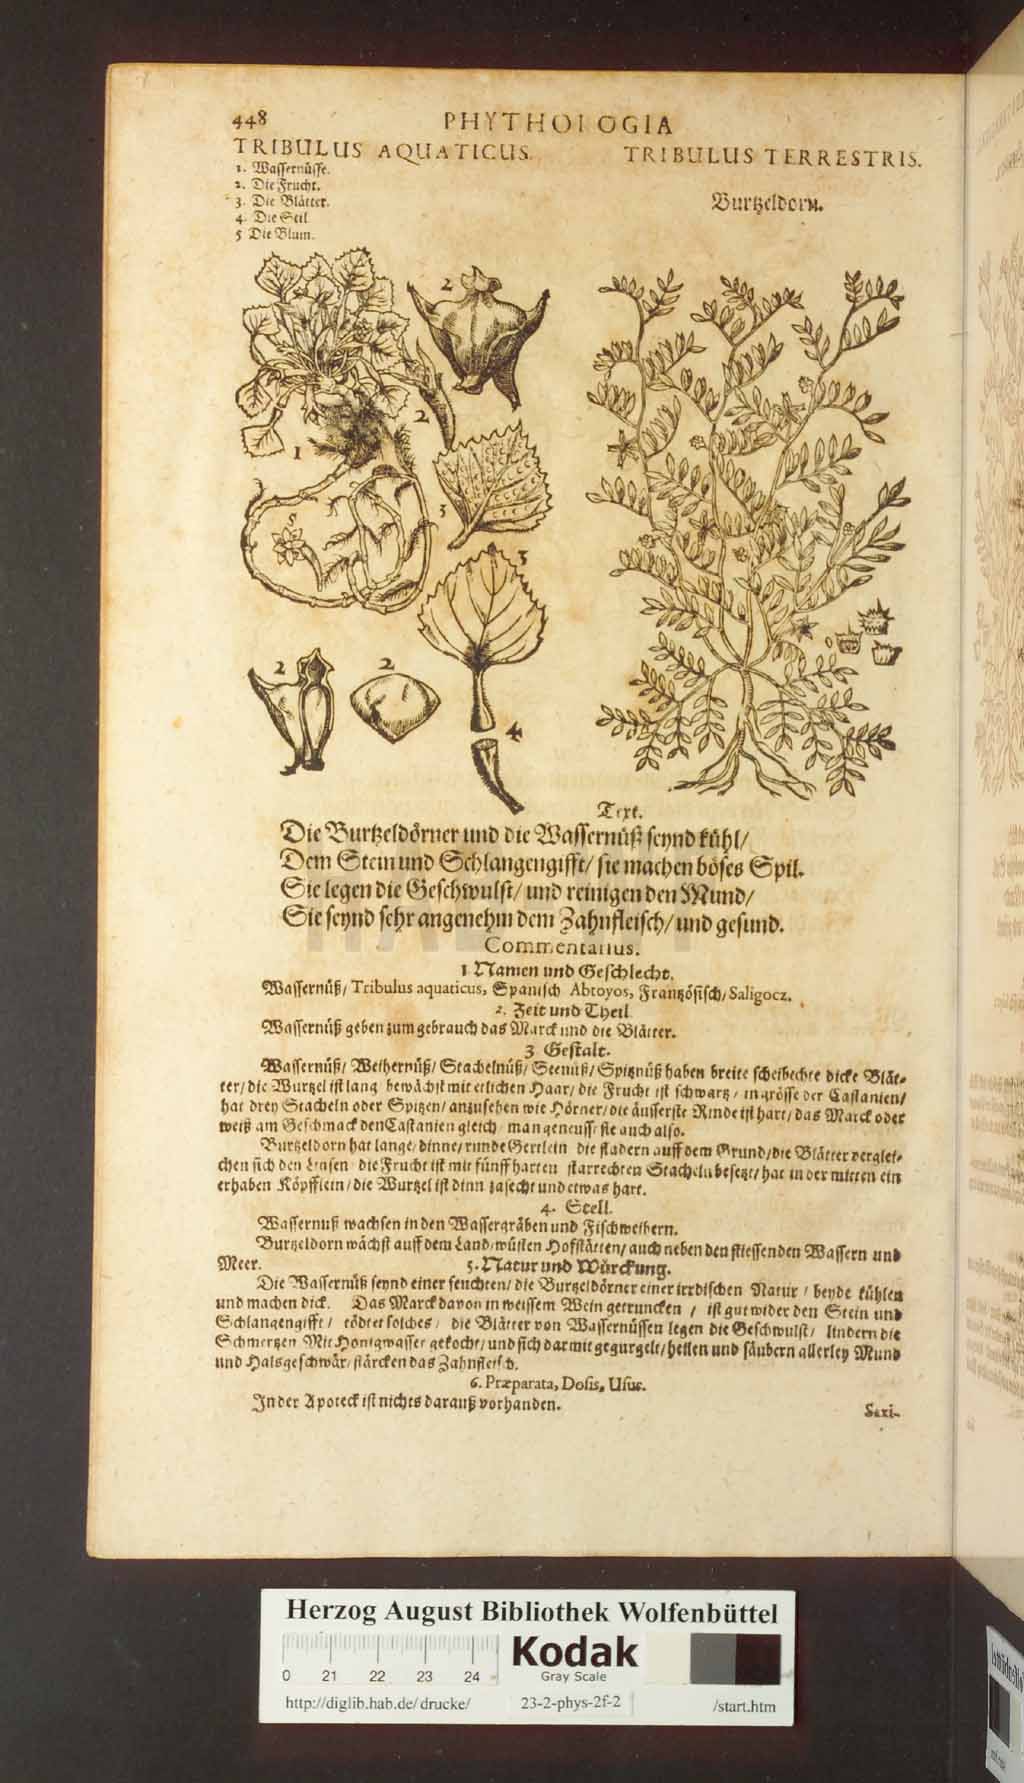 448 PHYTHOLOGIA
TRIBULUS AQUATICUS. TRIBULUS TERRESTRIS.
1. Wassernüsse.
2. Die Frucht.
3. Die Blätter.
4. Die Stil
5 Die Blum.
Burtzeldorn.
2
2
1
3
5
3
2
2
4
Text.
Die Burtzeldörner und die Wassernüß seynd kühl/
Dem Stein und Schlangengifft/ sie machen böses Spil.
Sie legen die Geschwulst/ und reinigen den Mund/
Sie seynd sehr angenehm dem Zahnfleisch/ und gesund.
Commentarius.
1 Namen und Geschlecht.
Wassernüß/ Tribulus aquaticus, Spanisch Abtoyos, Französisch/ Saligocz.
2. Zeit und Theil
Wassernüß geben zum gebrauch das Marck und die Blätter.
3 Gestalt.
Wassernüß/ Weihernüß/ Stachelnüß/ Seenüß/ Spitznüß haben breite scheibechte dicke Blät-
ter/ die Wurtzel ist lang bewächst mit etlichen Haar/ die Frucht ist schwartz/ in grösse der Castanien/
hat drey Stacheln oder Spitzen/ anzusehen wie Hörner/ die äusserste Rinde ist hart/ das Marck oder
weiß am Geschmack den Castanien gleich/ man geneust sie auch also.
Burtzeldorn hat lange/ dinne/ runde Gertlein die fladern auff dem Grund/ die Blätter verglei-
chen sich den Linsen die Frucht ist mit fünff harten starrechten Stacheln besetzt/ hat in der mitten ein
erhaben Köpfflein/ die Wurtzel ist dinn zasecht und etwas hart.
4. Stell.
Wassernuß wachsen in den Wassergräben und Fischweihern.
Burtzeldorn wächst auff dem Land/ wüsten Hofstätten/ auch neben den fliessenden Wassern und
Meer. 5. Natur und Würckung.
Die Wassernüß seynd einer feuchten/ die Burtzeldörner einer irrdischen Natur/ beyde kühlen
und machen dick. Das Marck davon in weissem Wein getruncken/ ist gut wider den Stein und
Schlangengifft/ tödtet solches/ die Blätter von Wassernüssen legen die Geschwulst/ lindern die
Schmertzen Mit Honigwasser gekocht/ und sich darmit gegurgelt/ heilen und säubern allerley Mund
und Halsgeschwär/ stärcken das Zahnfleisch.
6. Præparata, Dosis, Usus.
In der Apoteck ist nichts darauß vorhanden.
Herzog August Bibliothek Wolfenbüttel
0 21 22 23 24
Kodak
Gray Scale
http://diglib.hab.de/drucke/ 23-2-phys-2f-2 /start.htm